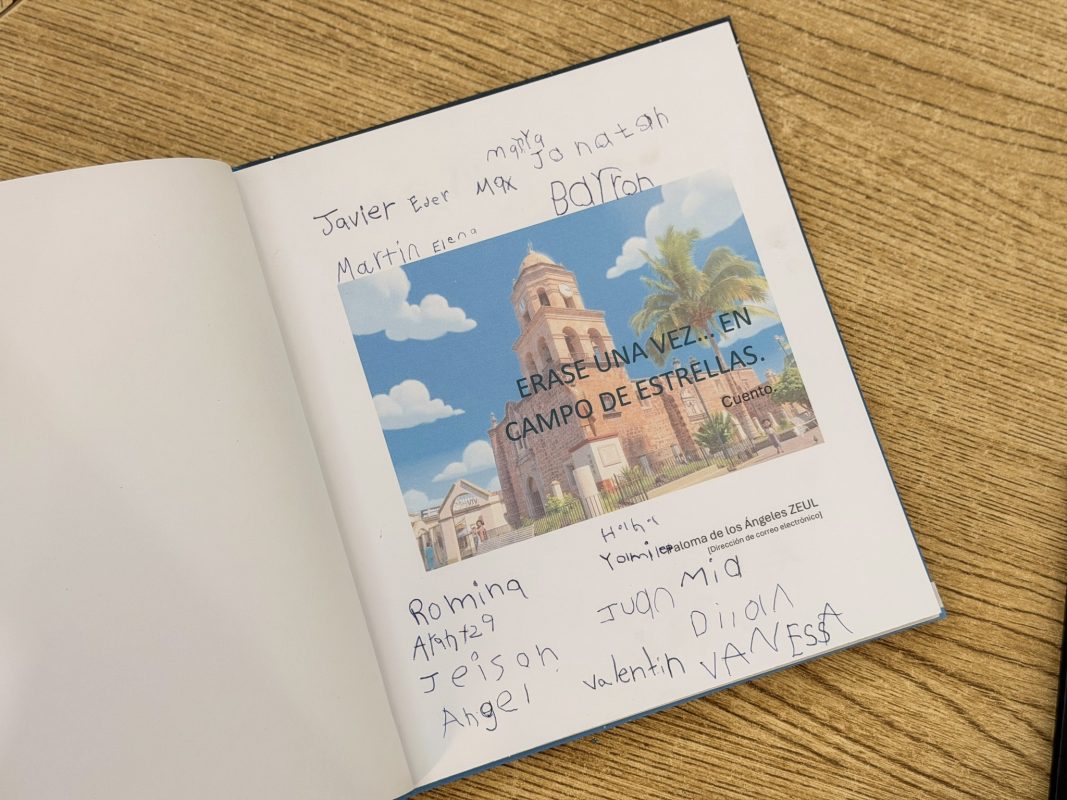 Maria Jonatah
Javier Eder Max Barron
Martin Elena
ERASE UNA VEZ... EN
CAMPO DE ESTRELLAS.
Cuento.
Paloma de los Ángeles ZEUL
[Dirección de correo electrónico]
Romina
Juan Mia
Jeison
Diian
Angel
Valentin VANESSA